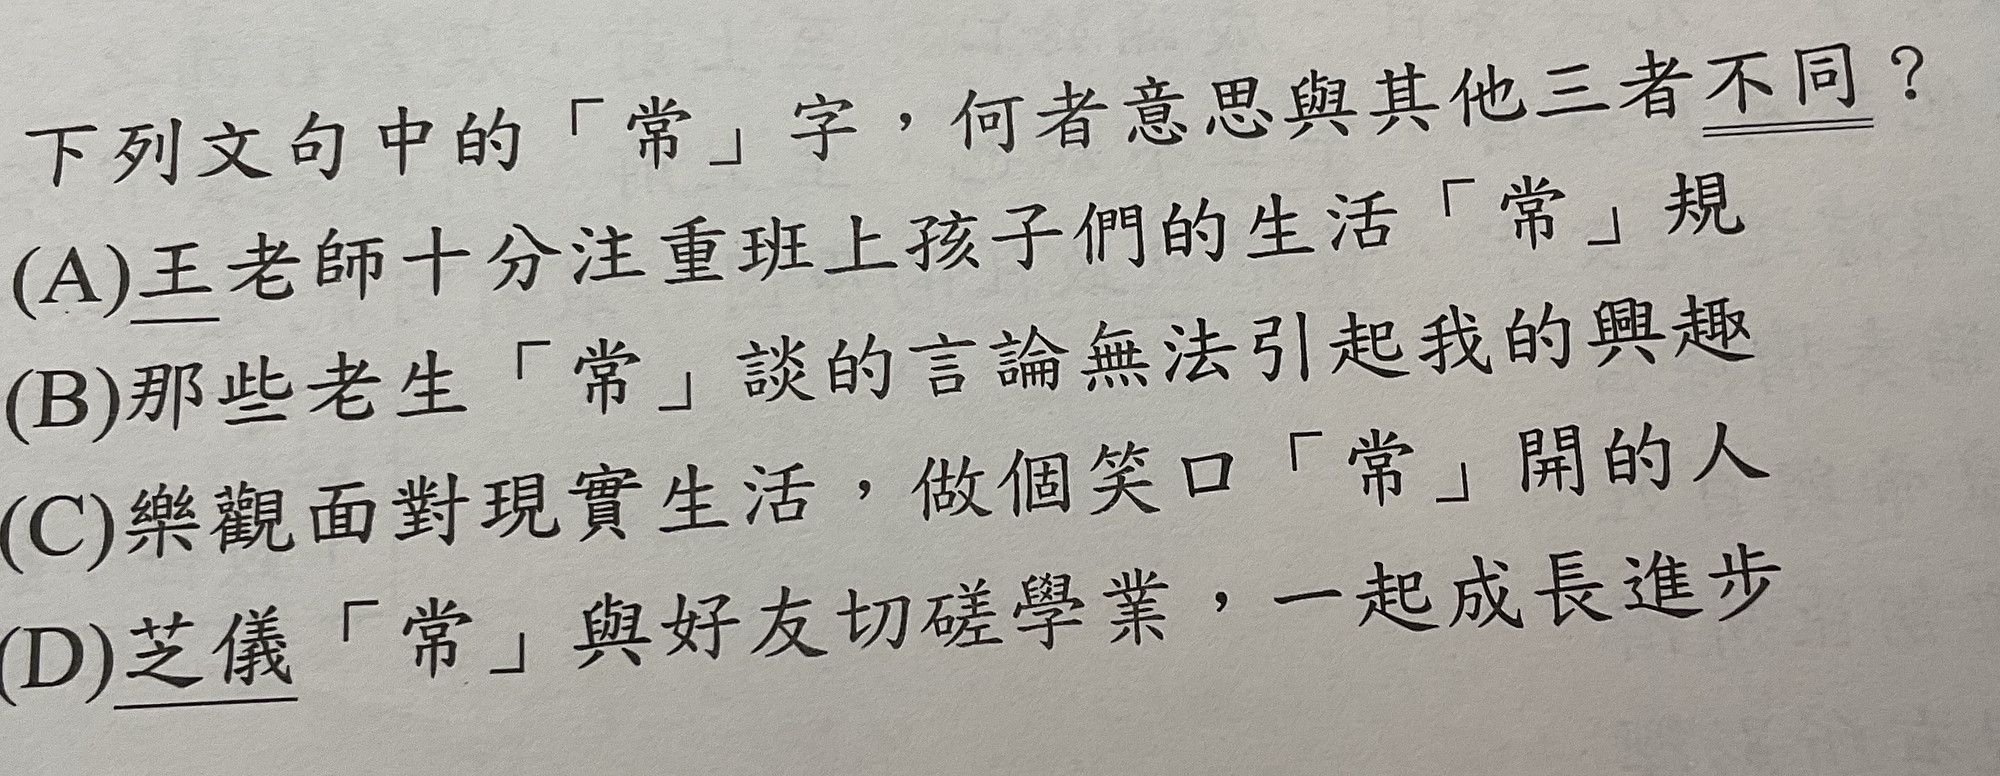 下列文句中的「常」字，何者意思與其他三者不同？
(A)王老師十分注重班上孩子們的生活「常」規
(B)那些老生「常」談的言論無法引起我的興趣
(C)樂觀面對現實生活，做個笑口「常」開的人
(D)芝儀「常」與好友切磋學業，一起成長進步